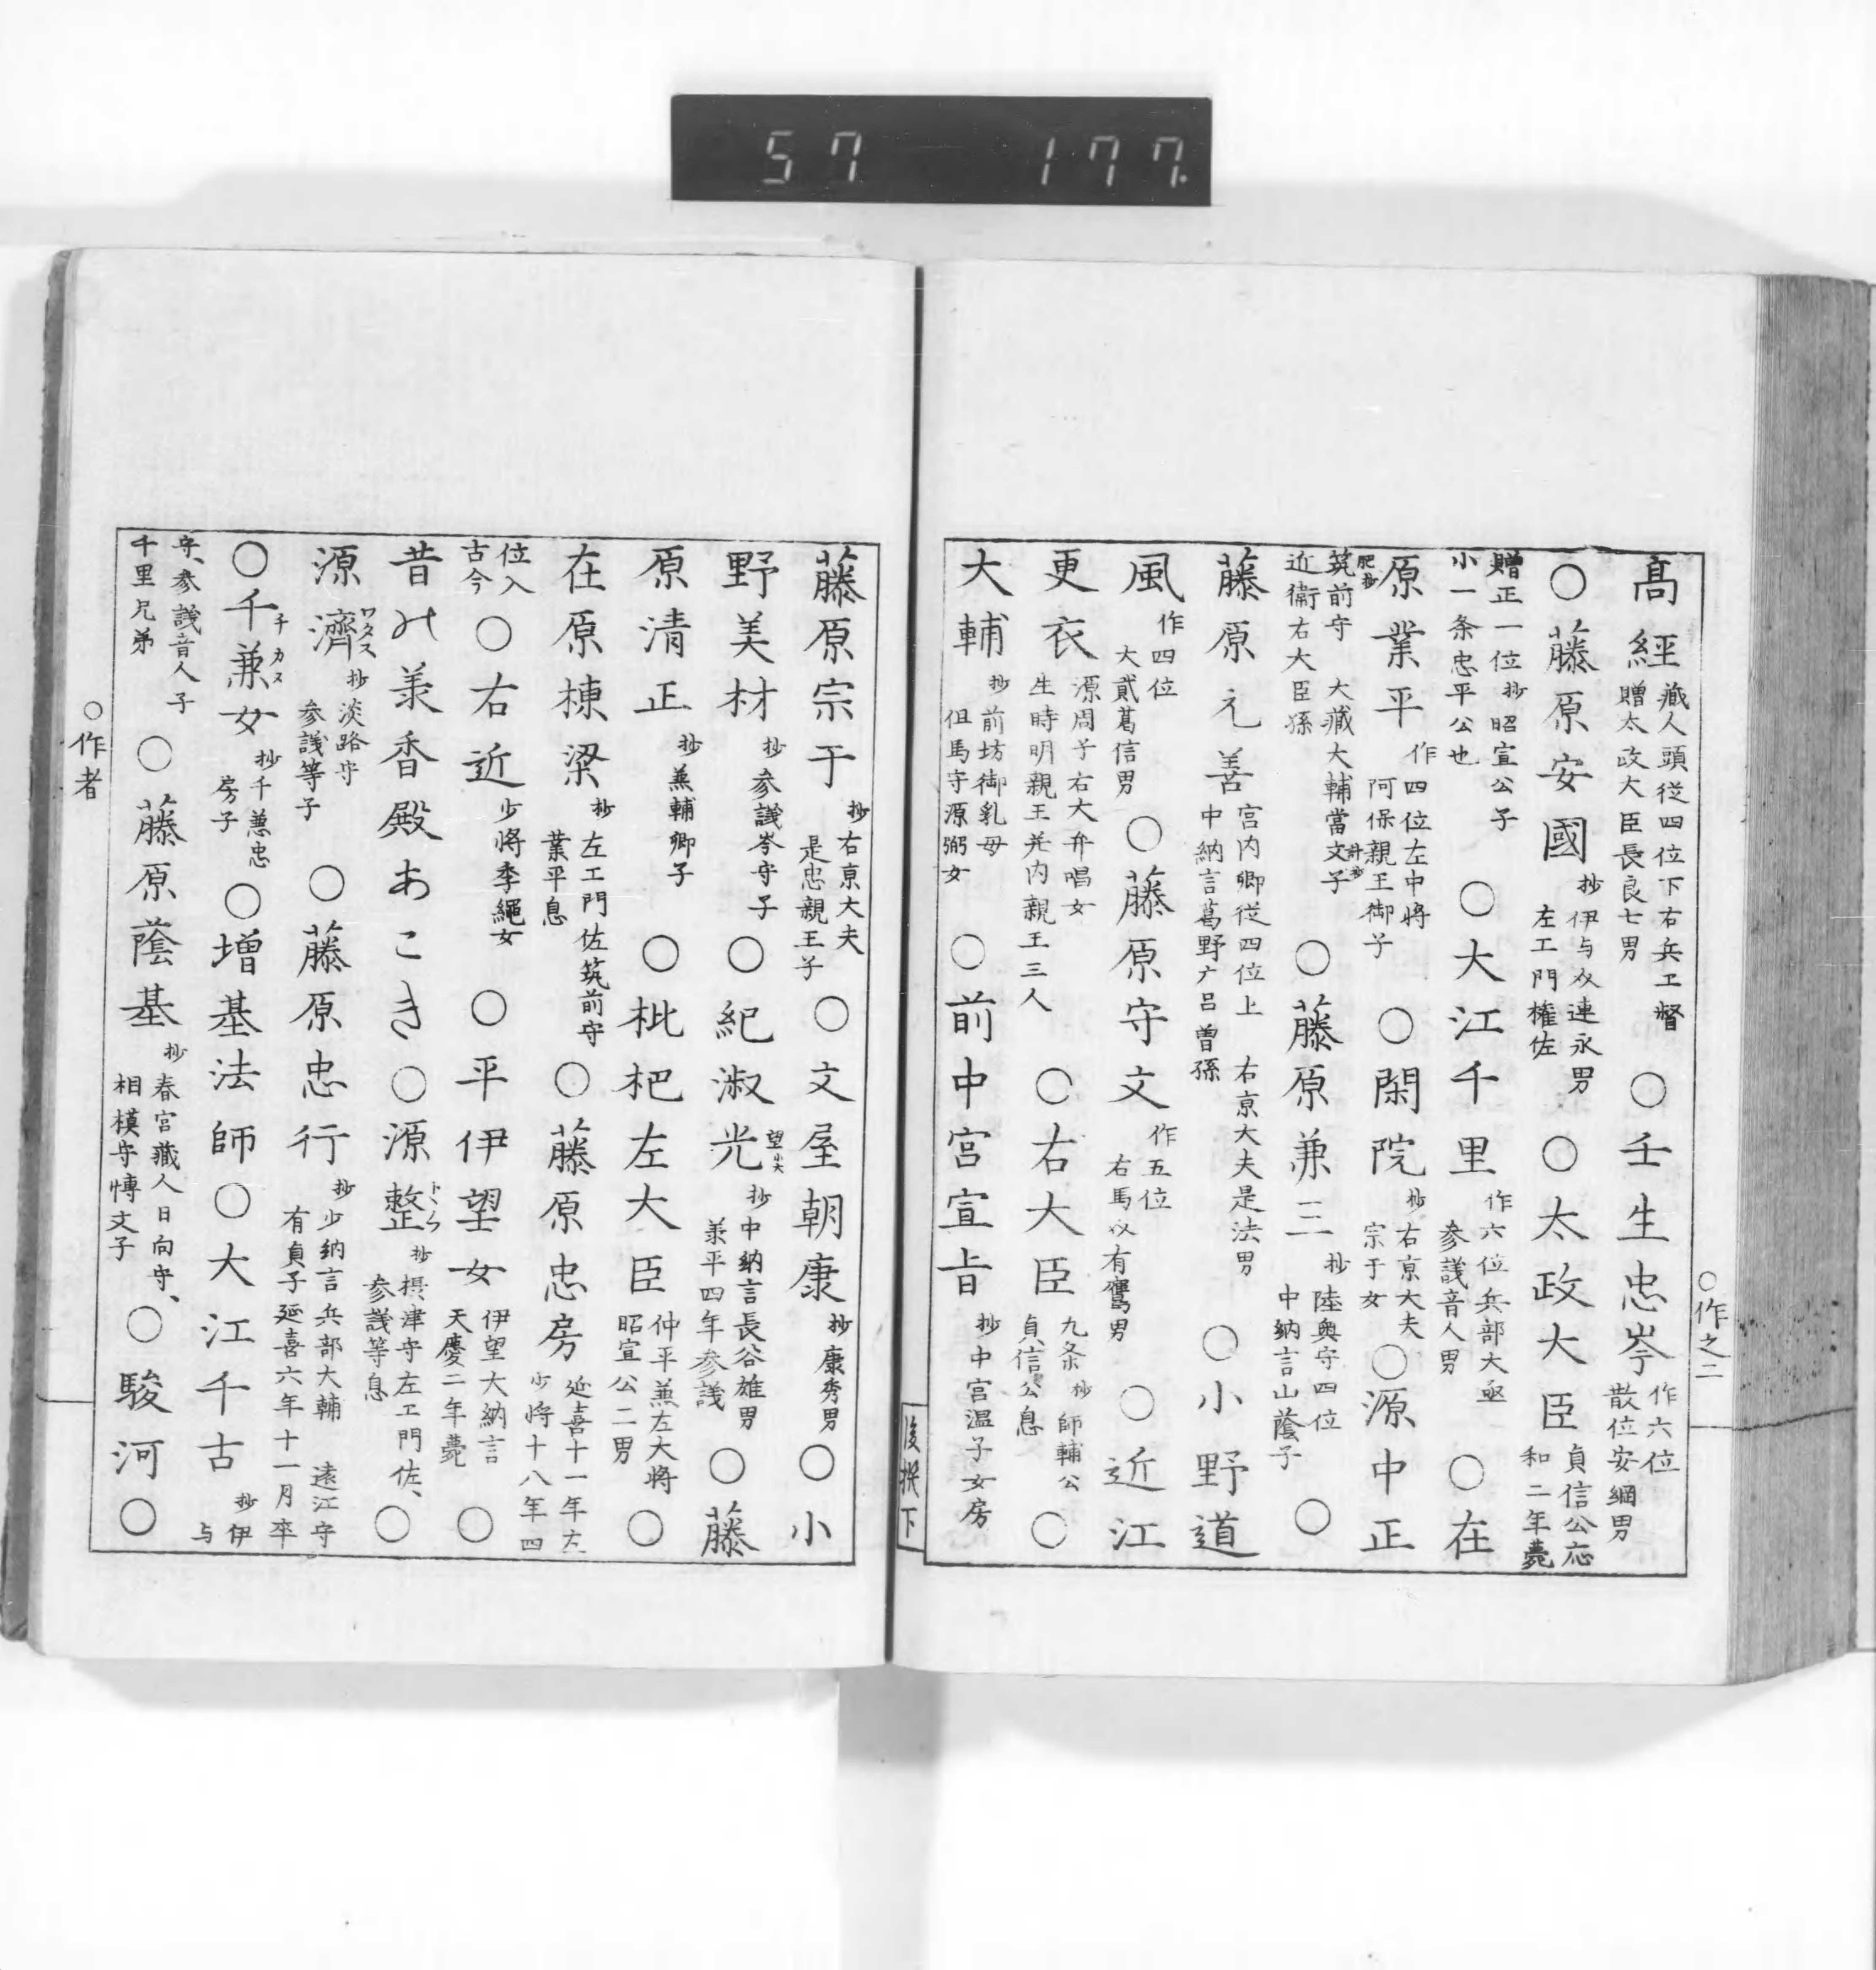 57 177.
高経 藏人頭従四位下右兵工督 贈太政大臣長良七男 ○壬生忠岑 作六位 散位安綱男
○藤原安國 抄伊与〆連永男 左工門權佐 ○太政大臣 貞信公応和二年薨
贈正一位 抄昭宣公子 小一条忠平公也 ○大江千里 作六位兵部大亟 参議音人男 ○在
原業平 作四位左中将 阿保親王御子 ○閑院 抄右京大夫 宗于女 ○源中正
筑前守 肥抄 大藏大輔當文子 弁抄 近衞右大臣孫 ○藤原兼三 抄陸奥守四位 中納言山蔭子 ○
藤原元善 宮内卿従四位上 右京大夫是法男 中納言葛野广呂曽孫 ○小野道
風 作四位 大貳葛信男 ○藤原守文 作五位 右馬〆有鷹男 ○近江
更衣 源周子右大弁唱女 生時明親王并内親王三人 ○右大臣 九条 抄師輔公 貞信公息 ○
大輔 抄前坊御乳母 但馬守源弼女 ○前中宮宣旨 抄中宮温子女房
○作之二
後撰下
藤原宗于 抄右京大夫 是忠親王子 ○文屋朝康 抄康秀男 ○小
野美材 抄参議岑守子 ○紀淑光 望小大 抄中納言長谷雄男 美平四年参議 ○藤
原清正 抄兼輔卿子 ○枇杷左大臣 仲平兼左大将 昭宣公二男 ○
在原棟梁 抄左工門佐筑前守 業平息 ○藤原忠房 延喜十一年左少将十八年四
位入古今 ○右近 少将季繩女 ○平伊望女 伊望大納言 天慶二年薨 ○
昔みー美香殿あこき ○源整 トヽノフ 抄摂津守左工門佐、参議等息 ○
源濟 ワタス 抄淡路守 参議等子 ○藤原忠行 抄少納言兵部大輔 遠江守 有貞子延喜六年十一月卒
○千兼女 チカス 抄千兼忠房子 ○増基法師 ○大江千古 抄伊与
守、参議音人子 千里兄弟 ○藤原蔭基 抄春宮藏人日向守、相模守愽文子 ○駿河 ○
○作者